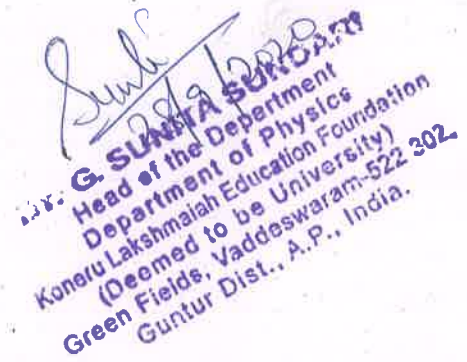 28/9/2020
Dr. G. SUNITA SUNDARI
Head of the Department
Department of Physics
Koneru Lakshmaiah Education Foundation
(Deemed to be University)
Green Fields, Vaddeswaram-522 302.
Guntur Dist., A.P., India.